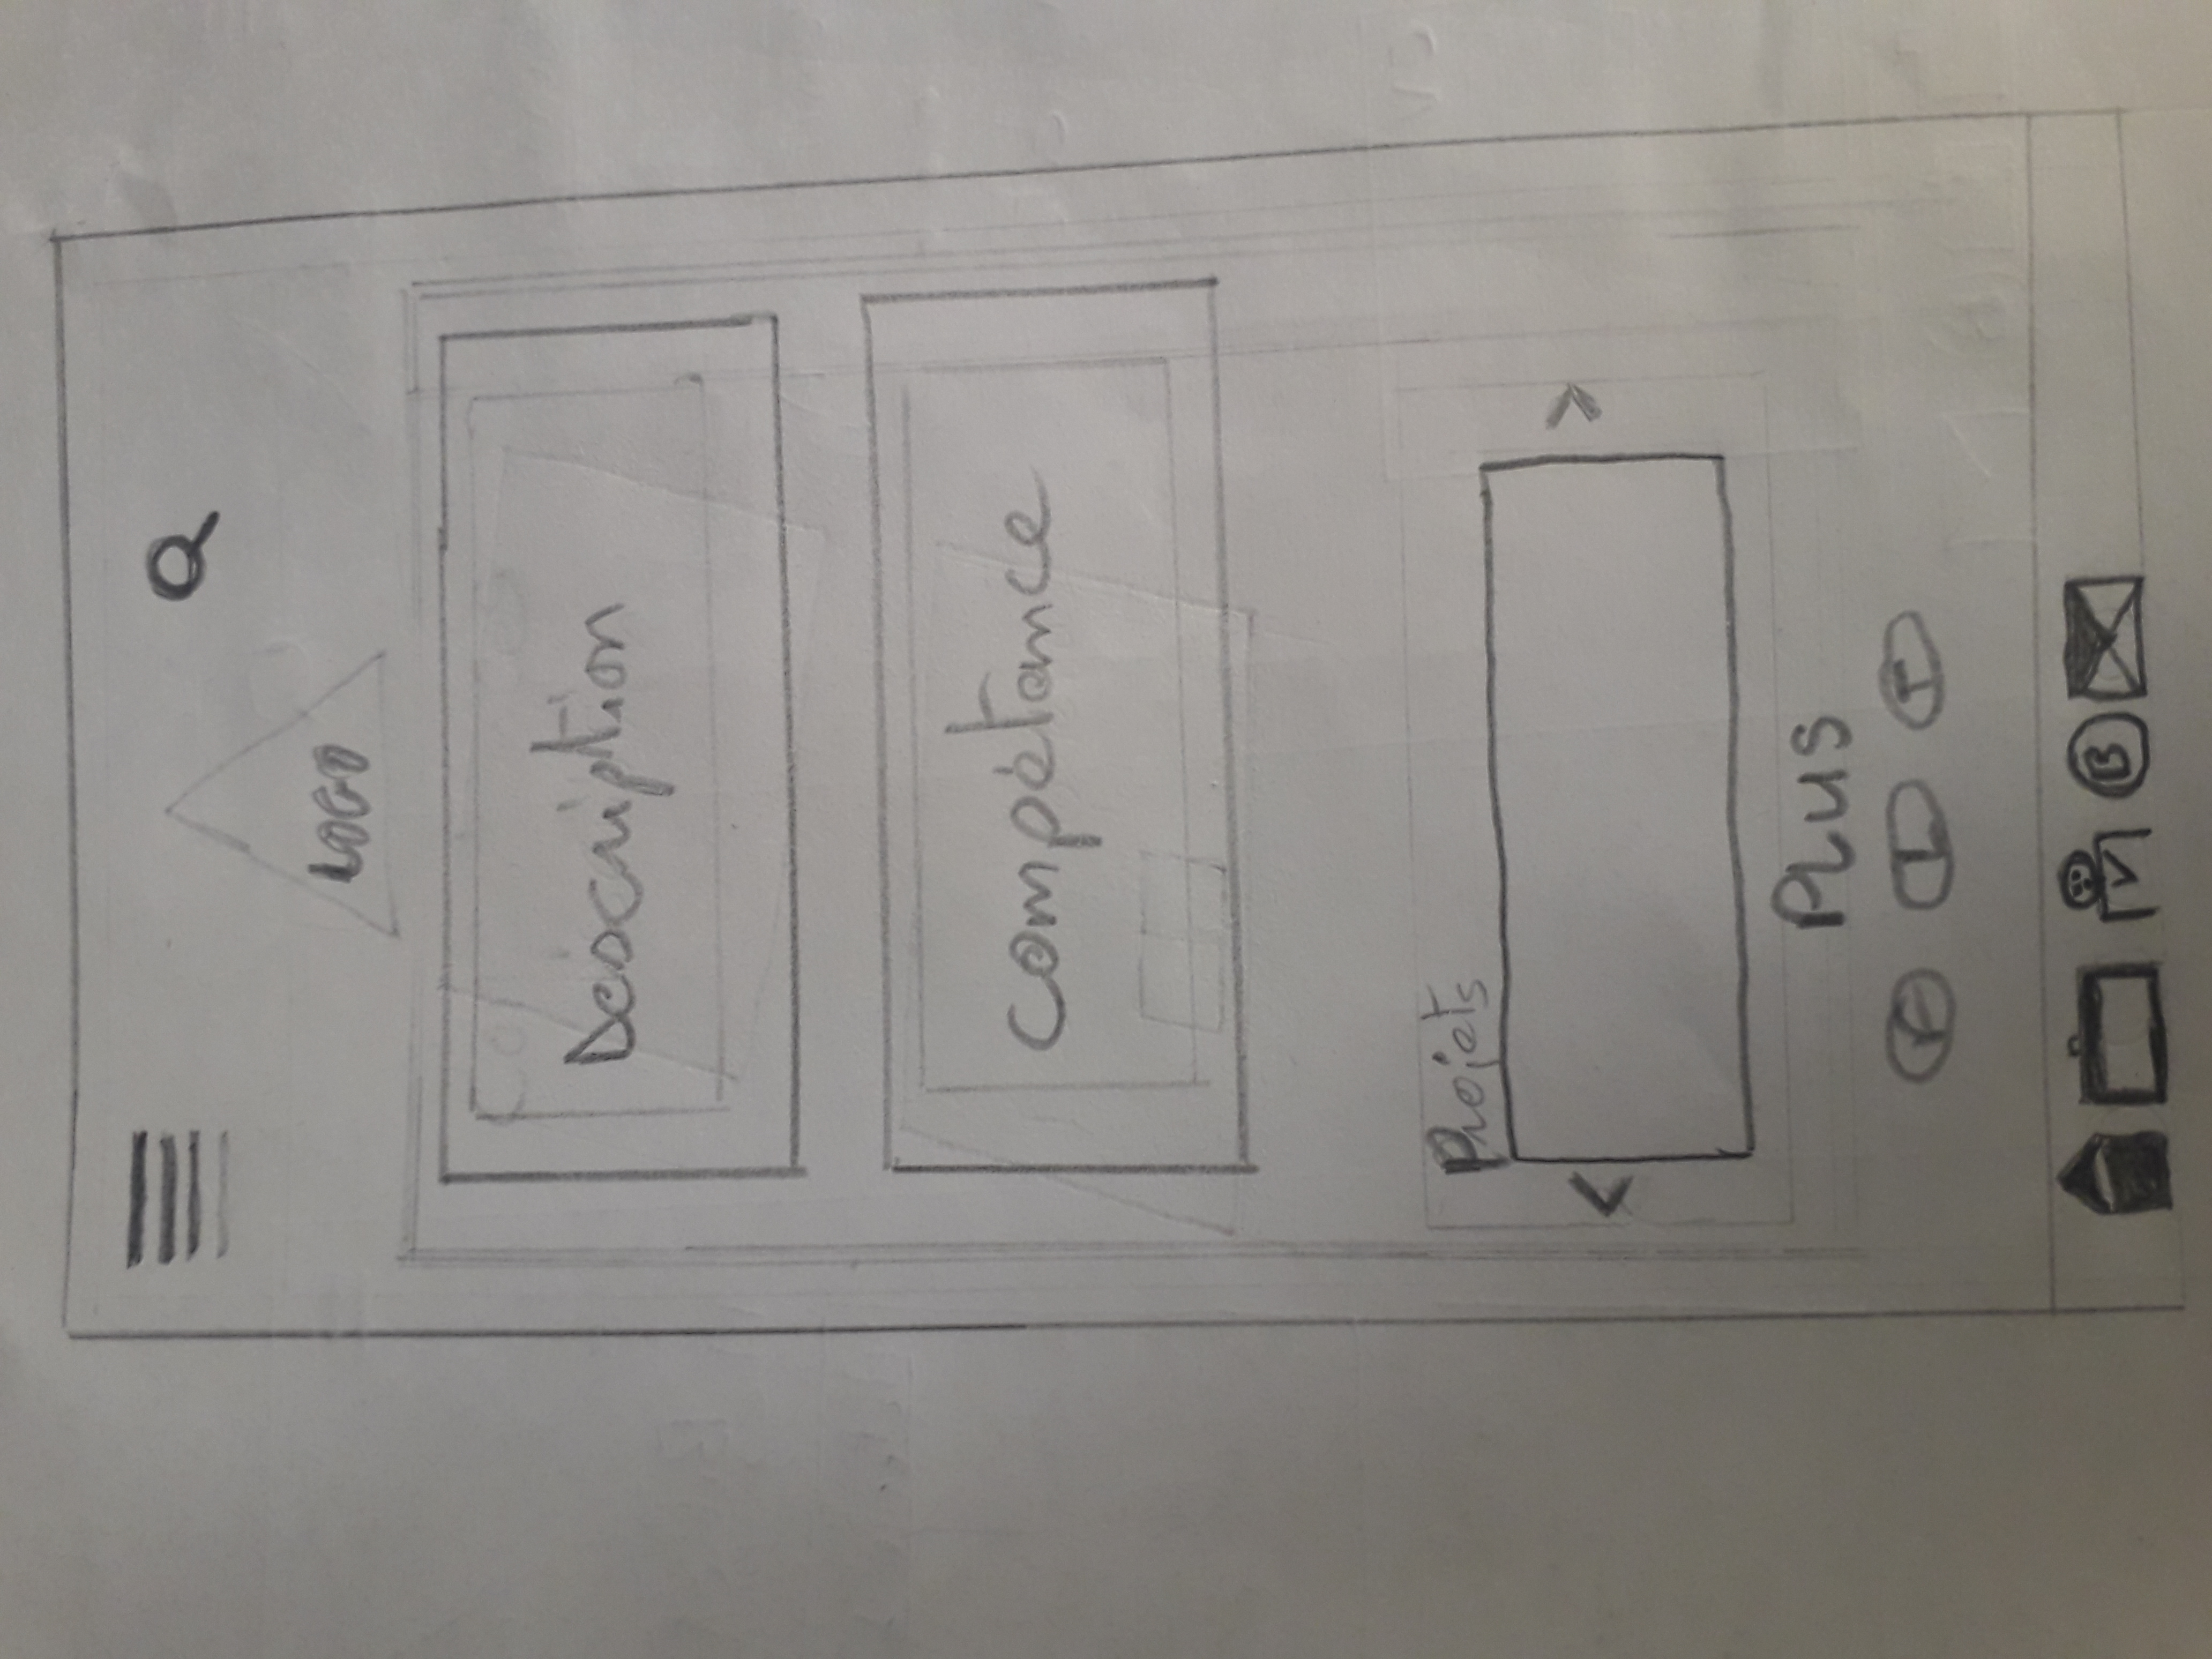 LOGO
Description
Compétance
Projets
<
>
PLUS
F L T
B